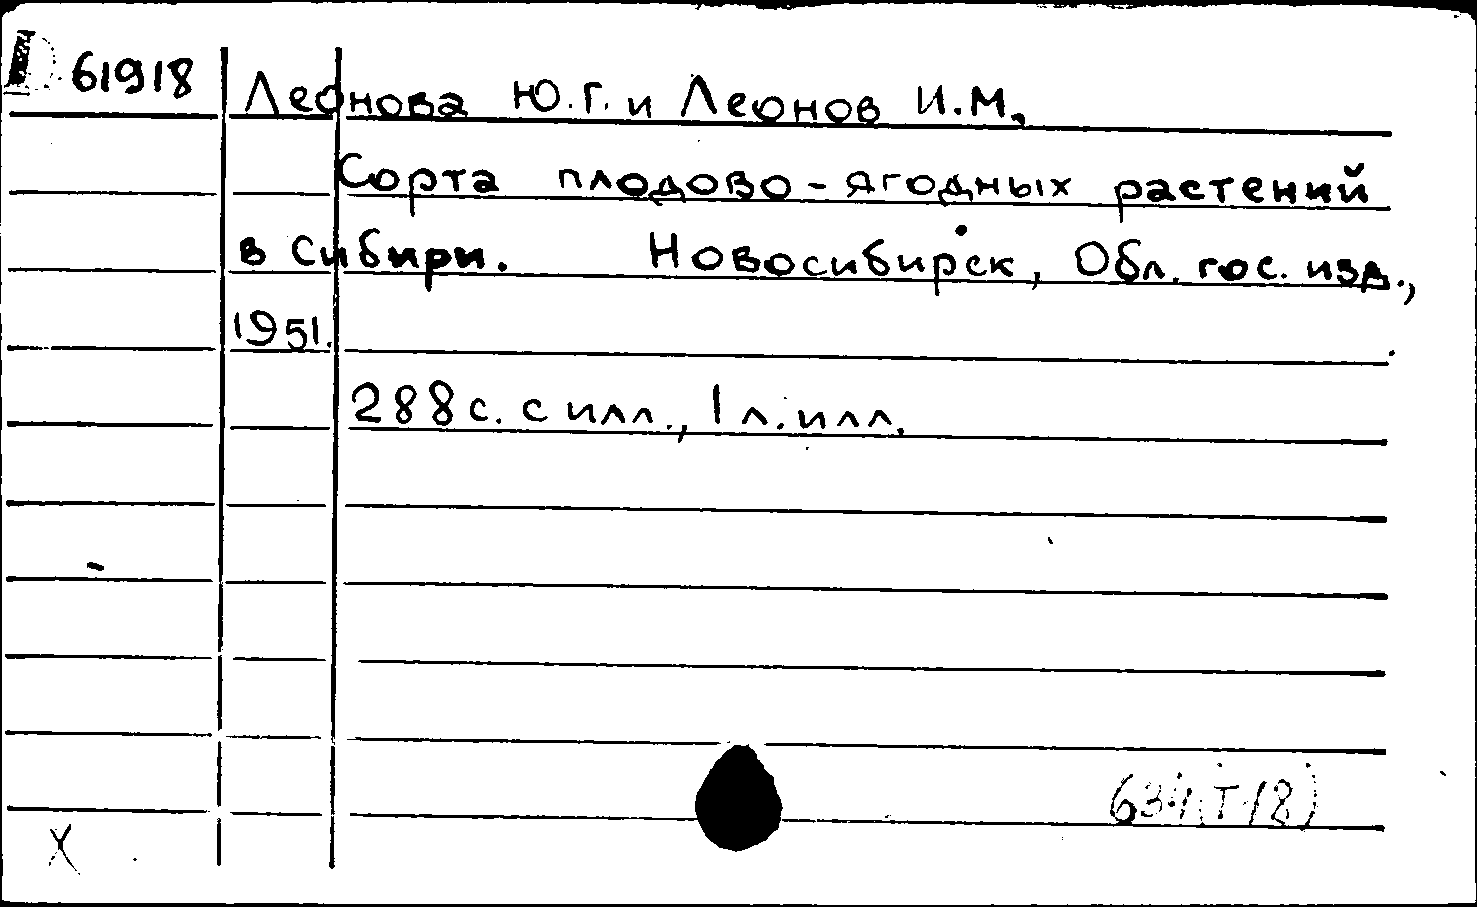 61918 Леонова Ю.Г. и Леонов И.М.
Сорта плодово-ягодных растений
в Сибири. Новосибирск, Обл. гос. изд.,
1951.
288 с. с илл., 1 л. илл.
634(Т18)
X